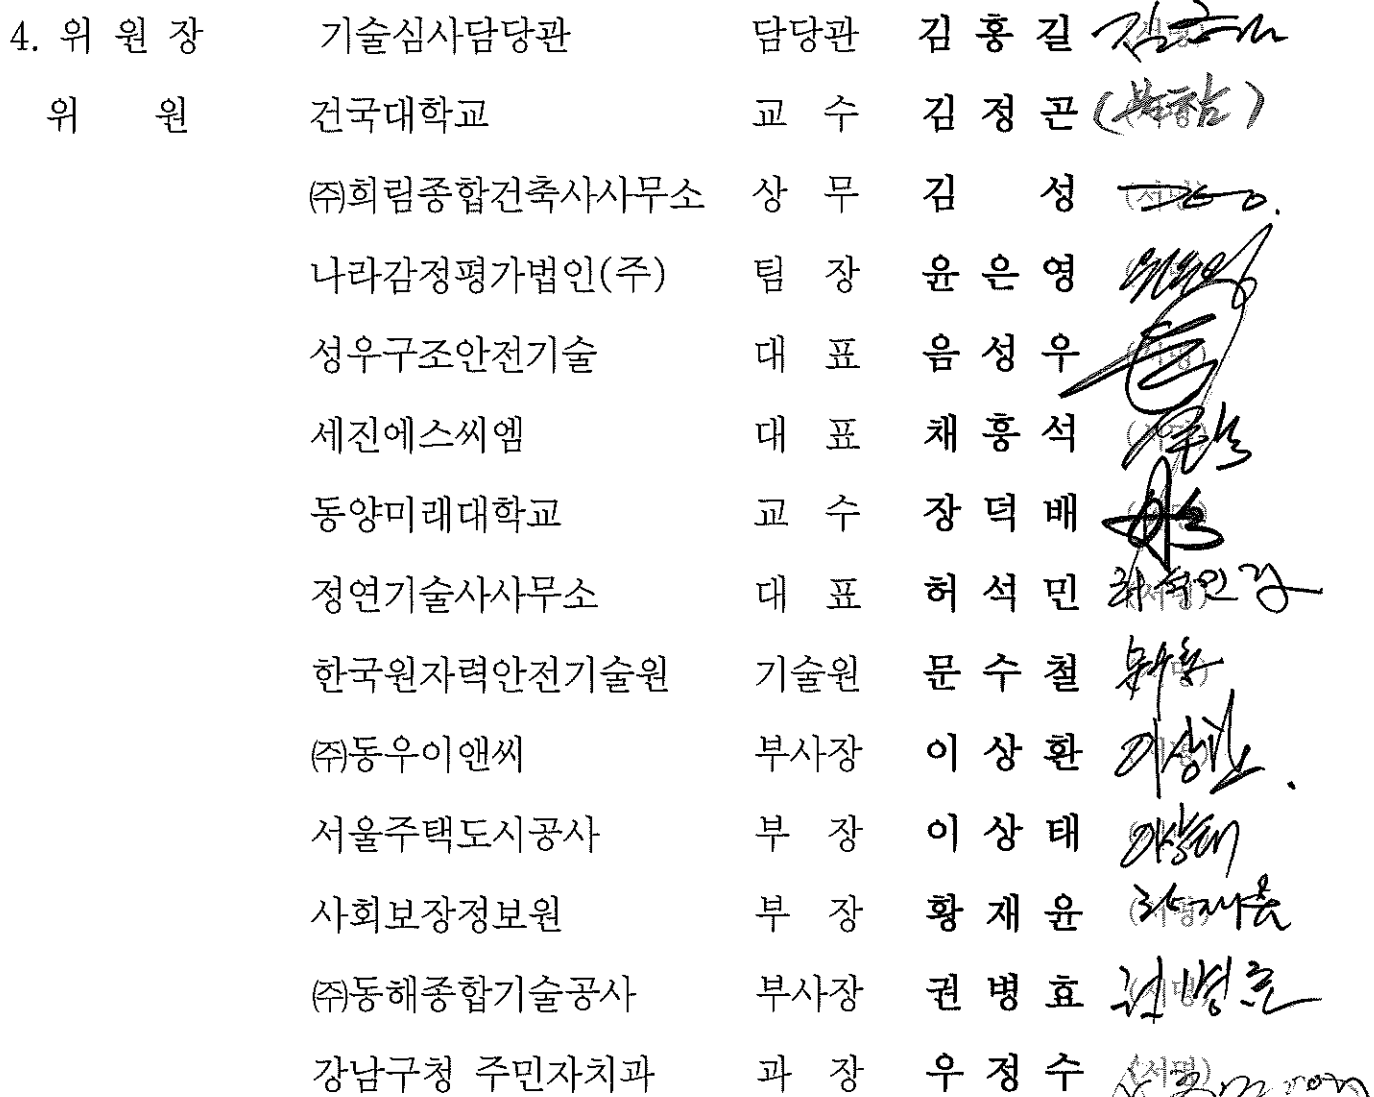 4. 위 원 장 기술심사담당관 담당관 김 홍 길 (서명)
위 원 건국대학교 교 수 김 정 곤 (불참)
㈜희림종합건축사사무소 상 무 김 성 (서명)
나라감정평가법인(주) 팀 장 윤 은 영
성우구조안전기술 대 표 음 성 우 (서명)
세진에스씨엠 대 표 채 흥 석 (서명)
동양미래대학교 교 수 장 덕 배
정연기술사사무소 대 표 허 석 민 (서명)
한국원자력안전기술원 기술원 문 수 철 (서명)
㈜동우이앤씨 부사장 이 상 환 (서명) 이상환
서울주택도시공사 부 장 이 상 태 이상태
사회보장정보원 부 장 황 재 윤 (서명) 황재윤
㈜동해종합기술공사 부사장 권 병 효 (서명) 권병효
강남구청 주민자치과 과 장 우 정 수 (서명)